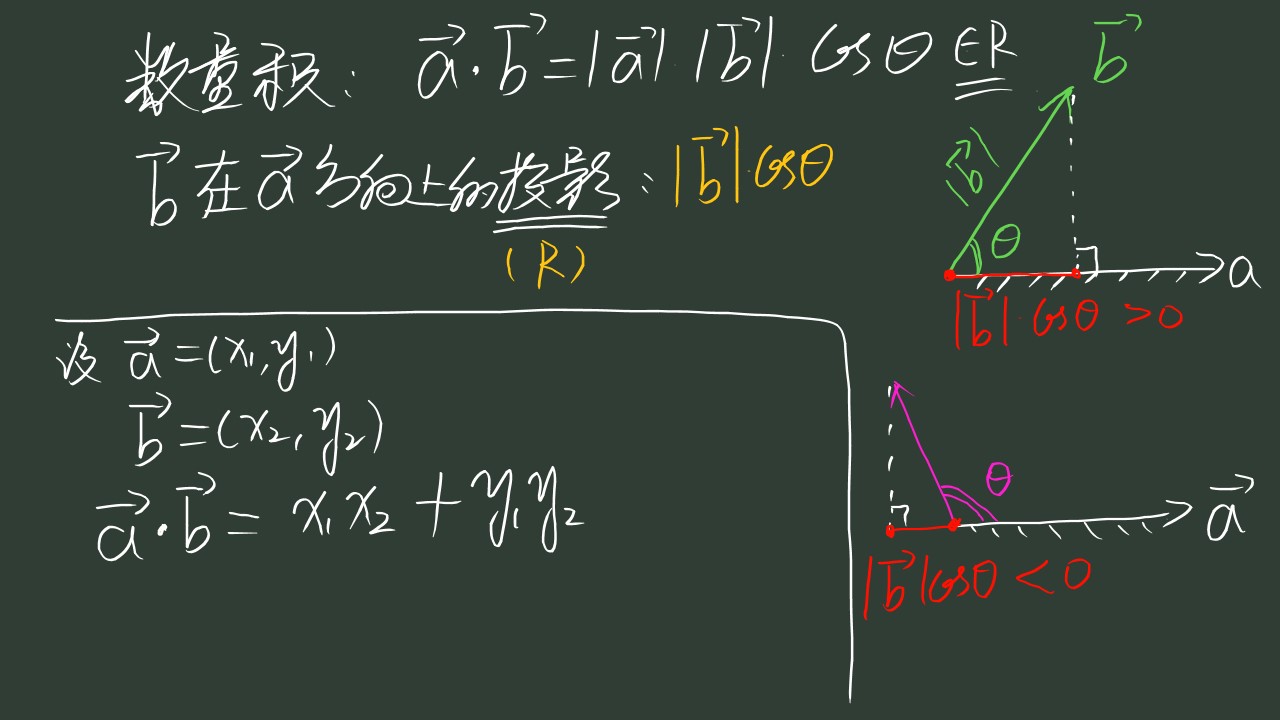 数量积: a⃗·b⃗=|a⃗|·|b⃗|·cosθ∈R
b⃗在a⃗方向上的投影:|b⃗|·cosθ
(R)
b⃗
|b⃗|
θ
a
|b⃗|·cosθ>0
设 a⃗=(x₁,y₁)
b⃗=(x₂,y₂)
a⃗·b⃗= x₁x₂+y₁y₂
θ
a⃗
|b⃗|cosθ<0